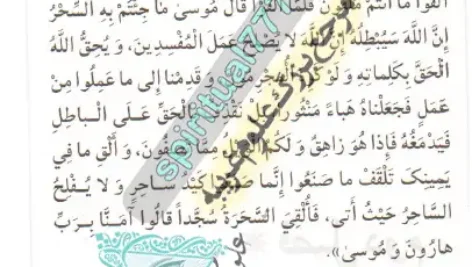 ألقوا ما أنتم ملقون فلما ألقوا قال موسى ما جئتم به السحر
إنَّ اللهَ سَيُبْطِلُهُ إنَّ اللهَ لا يُصْلِحُ عَمَلَ الْمُفْسِدِينَ، وَ يُحِقُّ اللهُ
الْحَقَّ بِكَلِماتِهِ وَ لَوْ كَرِهَ الْمُجْرِمُونَ وَ قَدِمْنا إلى ما عَمِلُوا مِنْ
عَمَلٍ فَجَعَلْناهُ هَباءً مَنْثُوراً بَلْ نَقْذِفُ بِالْحَقِّ عَلَى الْباطِلِ
فَيَدْمَغُهُ فَإذا هُوَ زاهِقٌ وَ لَكُمُ الْوَيْلُ مِمَّا تَصِفُونَ، وَ أَلْقِ ما فِي
يَمِينِكَ تَلْقَفْ ما صَنَعُوا إنَّما صَنَعُوا كَيْدُ ساحِرٍ وَ لا يُفْلِحُ
السَّاحِرُ حَيْثُ أتى، فَأُلْقِيَ السَّحَرَةُ سُجَّداً قالُوا آمَنَّا بِرَبِّ
هارُونَ وَ مُوسى».
spiritual777
مرجع بزرگ علوم غریبه